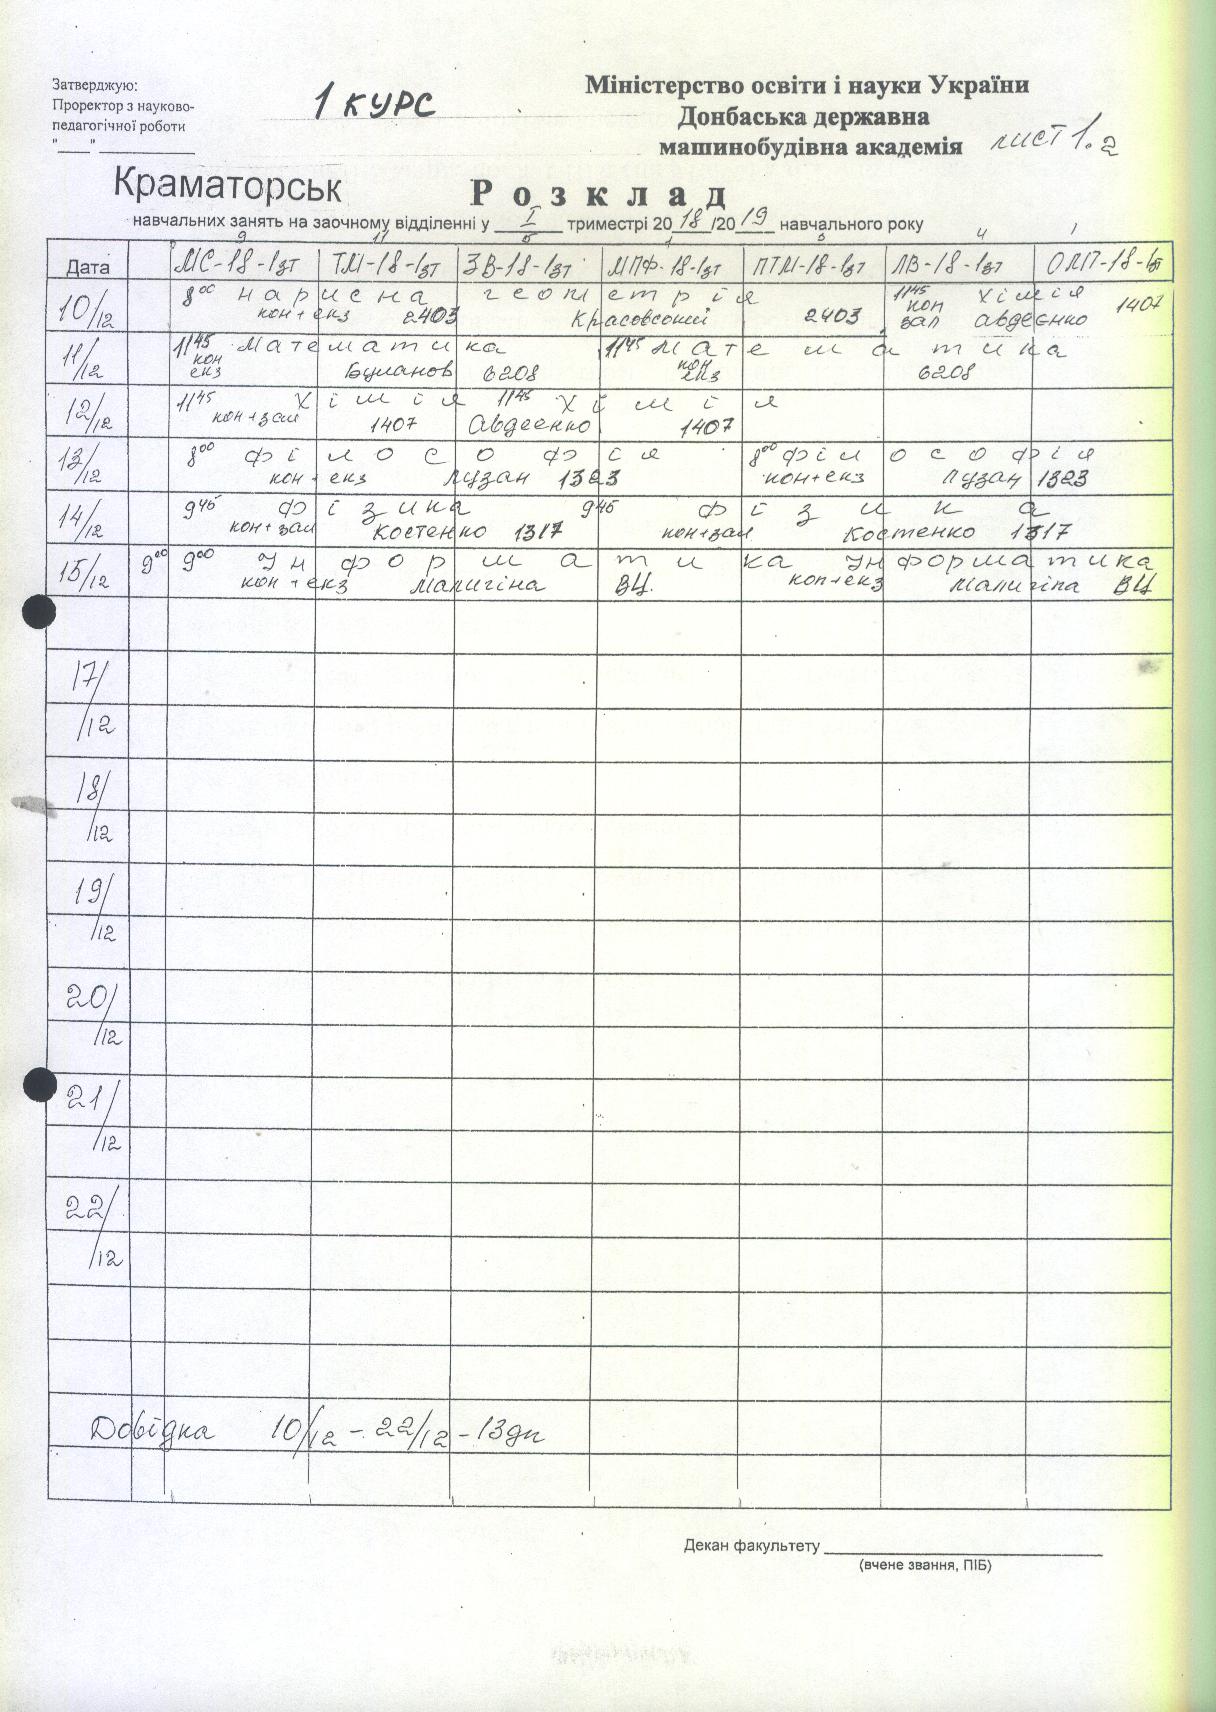 Затверджую:
Проректор з науково-
педагогічної роботи
"___" ___________
1 КУРС
Міністерство освіти і науки України
Донбаська державна
машинобудівна академія
лист 1.2
Краматорськ
Розклад
навчальних занять на заочному відділенні у I триместрі 2018/2019 навчального року
9 11 5 1 3 4 1
Дата МС-18-1зт ТМ-18-1зт ЗВ-18-1зт МПФ-18-1зт ПТМ-18-1зт ЛВ-18-1зт ОМП-18-1зт
10/12 8⁰⁰ нарисна геометрія 11⁴⁵ хімія 1407
кон+екз 2403 Красовський 2403 кон зал Авдеєнко
11/12 11⁴⁵ Математика 11⁴⁵ Математика
кон екз 6208 кон екз 6208
12/12 11⁴⁵ Хімія 11⁴⁵ Хімія
кон+зал 1407 Авдеєнко 1407
13/12 8⁰⁰ філософія 8⁰⁰ філософія
кон+екз Лузан 1323 кон+екз Лузан 1323
14/12 9⁴⁵ фізика 9⁴⁵ фізика
кон+зал Костенко 1317 кон+зал Костенко 1317
15/12 9⁰⁰ 9⁰⁰ Інформатика Інформатика
кон+екз Малигіна ВЦ. кон+екз Малигіна ВЦ
17/12
18/12
19/12
20/12
21/12
22/12
Довідка 10/12 - 22/12 - 13дн
Декан факультету
(вчене звання, ПІБ)